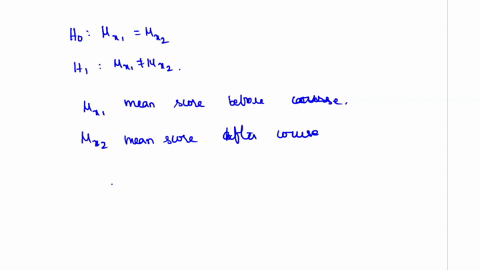 H₀ : μx₁ = μx₂
H₁ : μx₁ ≠ μx₂ .
μx₁ mean score before course.
μx₂ mean score after course